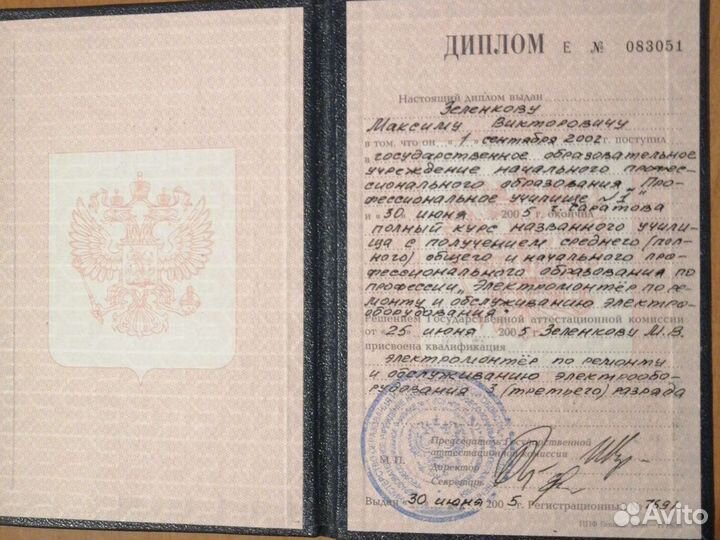 ДИПЛОМ Е № 083051
Настоящий диплом выдан
Зеленкову
Максиму Викторовичу
в том, что он „1“ сентября 2002 г. поступил
в государственное образовательное
учреждение начального профес-
сионального образования „Про-
фессиональное училище №1“
г. Саратова
и „30“ июня 2005 г. окончил
полный курс названного учили-
ща с получением среднего (пол-
ного) общего и начального про-
фессионального образования по
профессии „Электромонтёр по ре-
монту и обслуживанию электро-
оборудования“.
Решением Государственной аттестационной комиссии
от „25“ июня 2005 г. Зеленкову М.В.
присвоена квалификация
электромонтёр по ремонту
и обслуживанию электрообо-
рудования 3 (третьего) разряда
Председатель Государственной
аттестационной комиссии
М.П. Директор
Секретарь
Выдан „30“ июня 2005 г. Регистрационный №
Avito